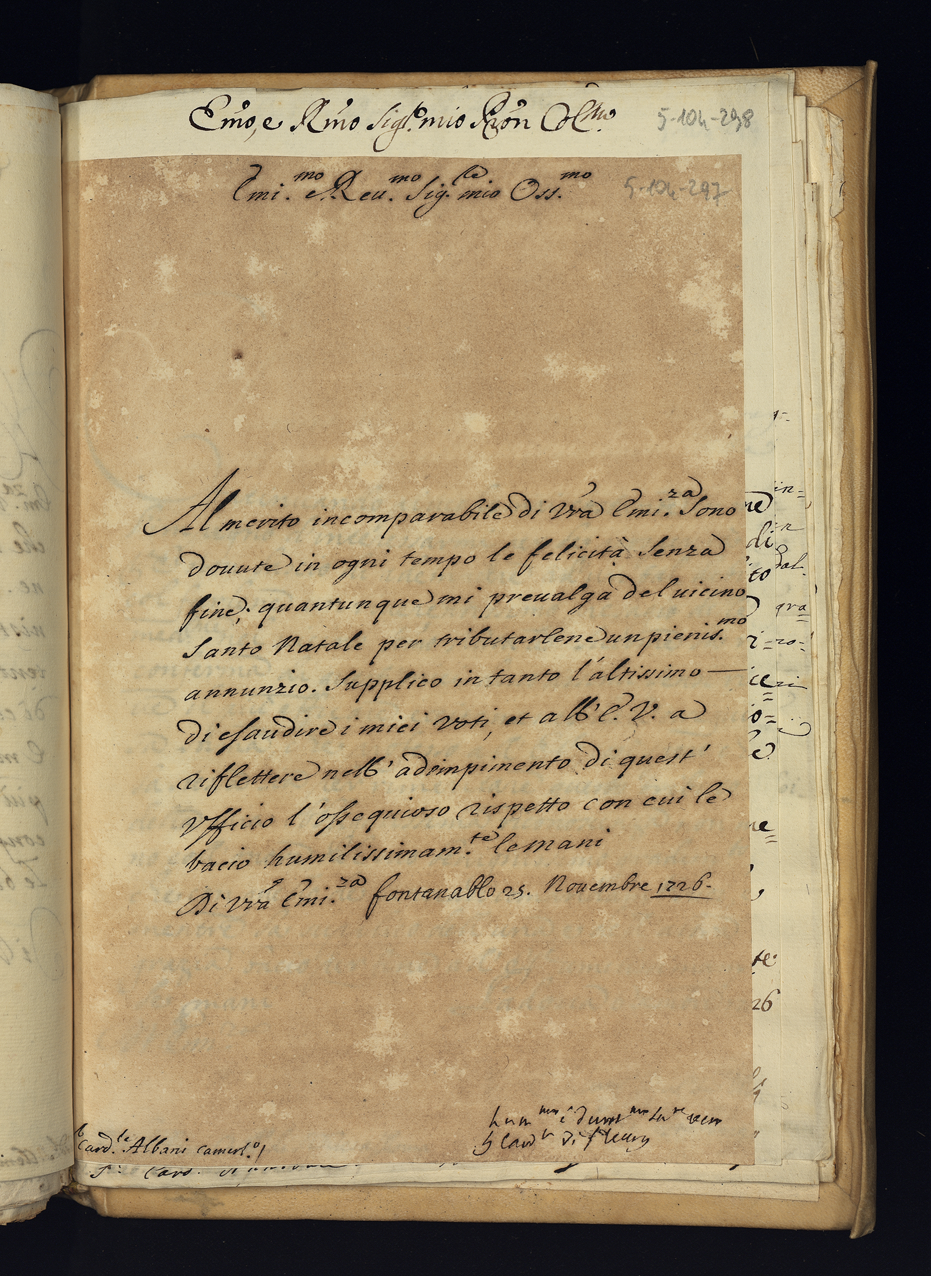 Emo, e Rmo Sigr. mio Pron Colmo.
5-104-298
Emi.mo e Reu.mo Sig.re mio Oss.mo
5-104-297
Al merito incomparabile di Vra Emi.za Sono
douute in ogni tempo le felicità Senza
fine; quantunque mi preualga del uicino
Santo Natale per tributarlene un pienis.mo
annunzio. Supplico in tanto l'altissimo
di esaudire i miei Voti, et all' E. V. a
riflettere nell' adempimento di quest'
Vfficio l'ossequioso rispetto con cui le
bacio humilissimam.te le mani
Di Vra Emi.za fontanablo 25. Nouembre 1726.
Card.le Albani camerl.o
hum.mo e deuot.mo Se.re vero
Il Card.le di fleury